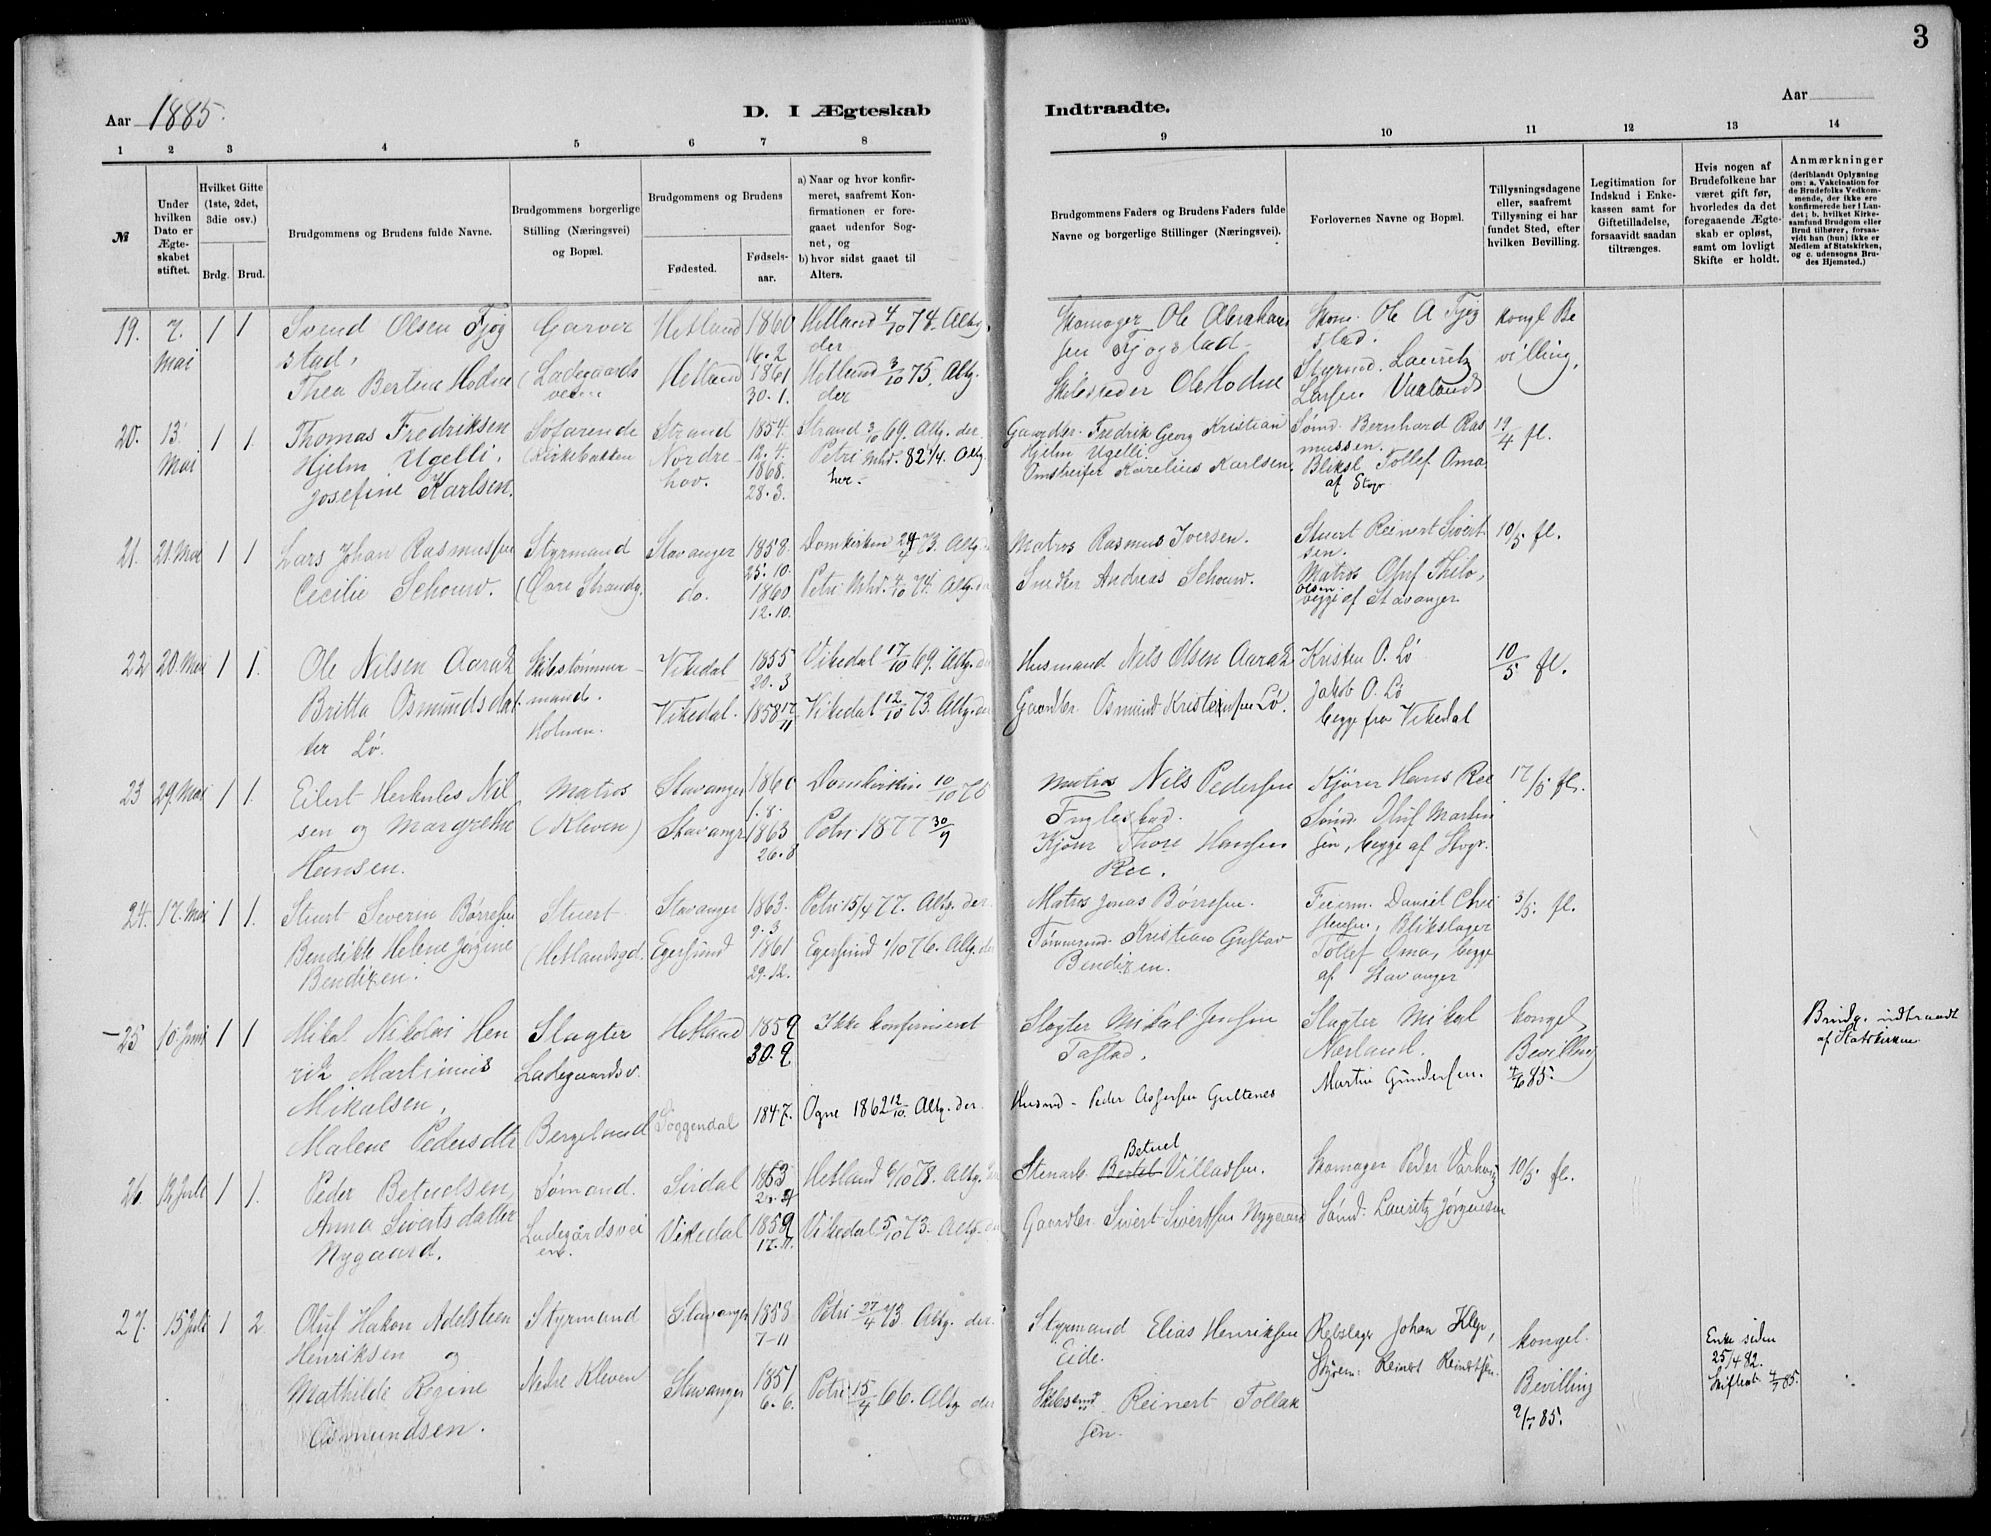 3
Aar 1885.
D. I Ægteskab Indtraadte.
Aar
1 2 3 4 5 6 7 8 9 10 11 12 13 14
№
Under hvilken Dato er Ægteskabet stiftet.
Hvilket Gifte (1ste, 2det, 3die osv.)
Brdg. Brud.
Brudgommens og Brudens fulde Navne.
Brudgommens borgerlige Stilling (Næringsvei) og Bopæl.
Brudgommens og Brudens
Fødested. Fødselsaar.
a) Naar og hvor konfirmeret, saafremt Konfirmationen er foregaaet udenfor Sognet, og
b) hvor sidst gaaet til Alters.
Brudgommens Faders og Brudens Faders fulde Navne og borgerlige Stillinger (Næringsvei).
Forlovernes Navne og Bopæl.
Tillysningsdagene eller, saafremt Tillysning ei har fundet Sted, efter hvilken Bevilling.
Legitimation for Indskud i Enkekassen samt for Giftetilladelse, forsaavidt saadan tiltrænges.
Hvis nogen af Brudefolkene har været gift før, hvorledes da det foregaaende Ægteskab er opløst, samt om lovligt Skifte er holdt.
Anmærkninger
(deriblandt Oplysning om: a. Vakcination for de Brudefolks Vedkommende, der ikke ere konfirmerede her i Landet; b. hvilket Kirkesamfund Brudgom eller Brud tilhører, forsaavidt han (hun) ikke er Medlem af Statskirken, og c. udensogns Brudes Hjemsted.)
19. 7. Mai 1 1 Svend Olsen Tjøgstad, Garver Hetland 1860 16.2 Hetland 4/10 74. Altg. der
Thea Bertine Hodne (Ladegaardsveien Hetland 1861 30.1. Hetland 3/10 75. Altg. der
Skomager Ole Abrahamsen Tjøgstad. Skom. Ole A Tjøgstad. kongl Bevilling,
Skibsreder Ole Hodne Styrmd. Lauritz Larsen
20. 13. Mai 1 1. Thomas Fredriksen Hjelm Ugelli. Søfarende Strand 1854. 12.4. Strand 3/10 69. Altg. der.
Josefine Karlsen. (Kirkebakken Nordrehov. 1868. 28.3. Petri Mhd. 82 Altg. her.
Gaardbr. Fredrik Georg Kristian Hjelm Ugelli. Sømd. Bernhard Rasmussen. 19/4 fl.
Omstreifer Karelius Karlsen. Bliksl Tollef Oma, af Stvgr
21. 21. Mai 1 1 Lars Johan Rasmussen Styrmand Stavanger 1858. 25.10. Domkirken 73. Altg. der
Cecilie Schouw. (Øvre Strandg. do. 1860 12.10. Petri Mhd. 4/10 74. Altg. der
Matros Rasmus Iversen. Stuert Reinert Sivertsen. 10/5 fl.
Smedker Andreas Schouw. Matros Oluf Thilo Olsen. begge af Stavanger
22 20. Mai 1 1. Ole Nilsen Skibstømmermand. Vikedal 1855 20.3 Vikedal 17/10 69. Altg. der
Britta Osmundsdatter Lø. Holmen. Vikedal. 1858 17/11 Vikedal 12/10 73. Altg. der
Husmand Nils Olsen Kristen O. Lø 10/5 fl.
Gaardbr. Osmund Kristensen Lø. Jakob O. Lø begge fra Vikedal
23 29 Mai 1 1. Eilert Herkules Nilsen og Matros Stavanger 1.8. Domkirken 10/10
Margrethe Hansen. (Kleven) Stavangr 1863 26.8 Petri 1877 30/9
Matros Nils Pedersen Fuglestad. Kjører Hans Roe 17/5 fl.
Kjører Thore Hansen Roe. Sømd. Oluf Martinsen, begge af Stvgr.
24. 17. Mai 1 1. Stuert Severin Børresen Stuert Stavanger 1863. 9.3 Petri 15/4 77. Altg. der.
Bendikte Helene Jørgine Bendixen. (Hetlandsgd. Egersund 1861 29.12. Egersund 1/10 76. Altg. der
Matros Jonas Børresen. Feierm. Daniel Christensen, 3/5. fl.
Tømmermd. Kristian Gustav Bendixen. Blikslager Tollef Oma, begge af Stavanger
25 10. Juni 1 1 Mikal Nikolai Henrik Martinius Mikalsen, Slagter Ladegaardsv. Hetland 1859 30.9. Ikke konfirmeret
Malene Pedersdtr Bergelund Soggendal 1847. Ogne 1862 12/10. Altg. der.
Slagter Mikal Jensen Tastad. Slagter Mikal Nærland. kongel. Bevilling 4/6 85.
Husmd. Peder Asgersen Martin Gundersen.
Brudg. indtraadt af Statskirken
26 12 Juli 1 1. Peder Betuelsen, Sømand. Sirdal 1863 Hetland 6/10 78. Altg. der
Anna Sivertsdatter Nygaard. Ladegårdsveien. Vikedal 1859 17.11. Vikedal 5/10 73. Altg. der
Stenarb. Bertel Betuel Villadsen. Skomager Peder Varhoug 10/5. fl.
Gaardbr. Sivert Sivertsen Nygaard Sømd. Lauritz Jørgensen
27. 15 Juli 1 2 Oluf Hakon Adelsteen Henriksen og Styrmand Stavanger 1858 7-11 Petri 27/4 73. Altg. der.
Mathilde Regine Osmundsen. Nedre Kleven Stavanger 1851 6.6. Petri 15/4 66. Altg der
Styrmand Elias Henriksen Eide. Rebslager Johan Klep, kongel. Bevilling 9/7 85.
Skibsmd Reinert Tollaksen. Styrm. Reinert Reinertsen.
Enke siden 25/4 82. Skifteat. 4/7 85.